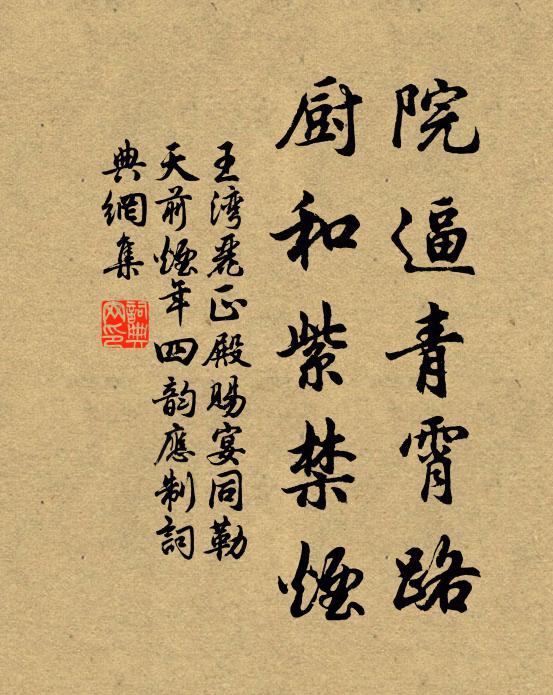 院逼青霄路
厨和紫禁煙
王湾麗正殿賜宴同勒
天前煙年四韵應制詞
典網集
詞典
网印